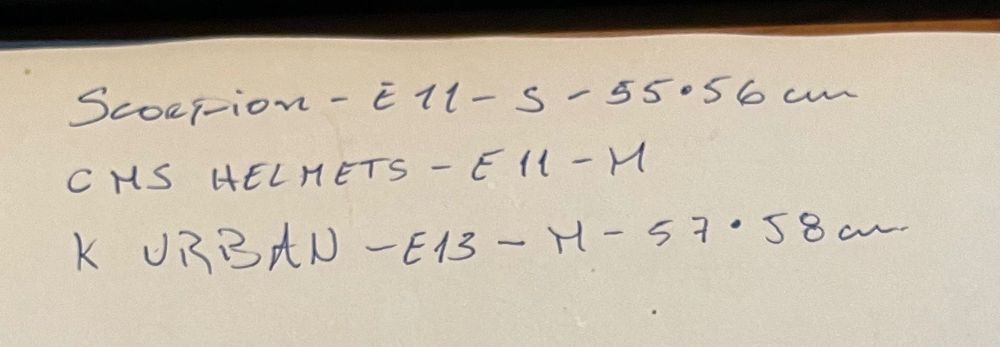 Scorpion - E 11 - S - 55•56 cm
CMS HELMETS - E 11 - M
K URBAN - E13 - M - 57•58 cm